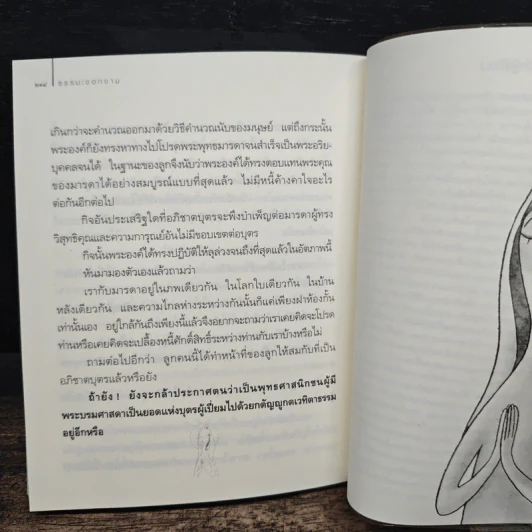 ๒๓๔ ธรรมะงอกงาม
เกินกว่าจะคำนวณออกมาด้วยวิธีคำนวณนับของมนุษย์ แต่ถึงกระนั้น
พระองค์ก็ยังทรงหาทางไปโปรดพระพุทธมารดาจนสำเร็จเป็นพระอริย-
บุคคลจนได้ ในฐานะของลูกจึงนับว่าพระองค์ได้ทรงตอบแทนพระคุณ
ของมารดาได้อย่างสมบูรณ์แบบที่สุดแล้ว ไม่มีหนี้ค้างคาใจอะไร
ต่อกันอีกต่อไป
กิจอันประเสริฐใดที่อภิชาตบุตรจะพึงบำเพ็ญต่อมารดาผู้ทรง
วิสุทธิคุณและความการุณย์อันไม่มีขอบเขตต่อบุตร
กิจนั้นพระองค์ได้ทรงปฏิบัติให้ลุล่วงจนถึงที่สุดแล้วในอัตภาพนี้
หันมามองตัวเองแล้วถามว่า
เรากับมารดาอยู่ในภพเดียวกัน ในโลกใบเดียวกัน ในบ้าน
หลังเดียวกัน และความไกลห่างระหว่างกันนั้นก็แค่เพียงฝาห้องกั้น
เท่านั้นเอง อยู่ใกล้กันถึงเพียงนี้แล้วจึงอยากจะถามว่าเราเคยคิดจะโปรด
ท่านหรือเคยคิดจะเปลื้องหนี้ศักดิ์สิทธิ์ระหว่างท่านกับเราบ้างหรือไม่
ถามต่อไปอีกว่า ลูกคนนี้ได้ทำหน้าที่ของลูกให้สมกับที่เป็น
อภิชาตบุตรแล้วหรือยัง
ถ้ายัง! ยังจะกล้าประกาศตนว่าเป็นพุทธศาสนิกชนผู้มี
พระบรมศาสดาเป็นยอดแห่งบุตรผู้เปี่ยมไปด้วยกตัญญูกตเวทิตาธรรม
อยู่อีกหรือ